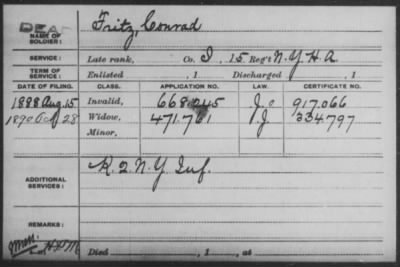 DEAD
NAME OF SOLDIER: Fritz, Conrad
SERVICE: Late rank, Co. I, 15 Reg't N.Y.H.A
TERM OF SERVICE: Enlisted , 1 Discharged , 1
DATE OF FILING. CLASS. APPLICATION NO. LAW. CERTIFICATE NO.
1888 Aug. 15 Invalid, 668.245 917.066
1890 28 Widow, 471.761 334797
Minor,
ADDITIONAL SERVICES: K. 2. N.Y. Inf.
REMARKS:
Died , 1 , at